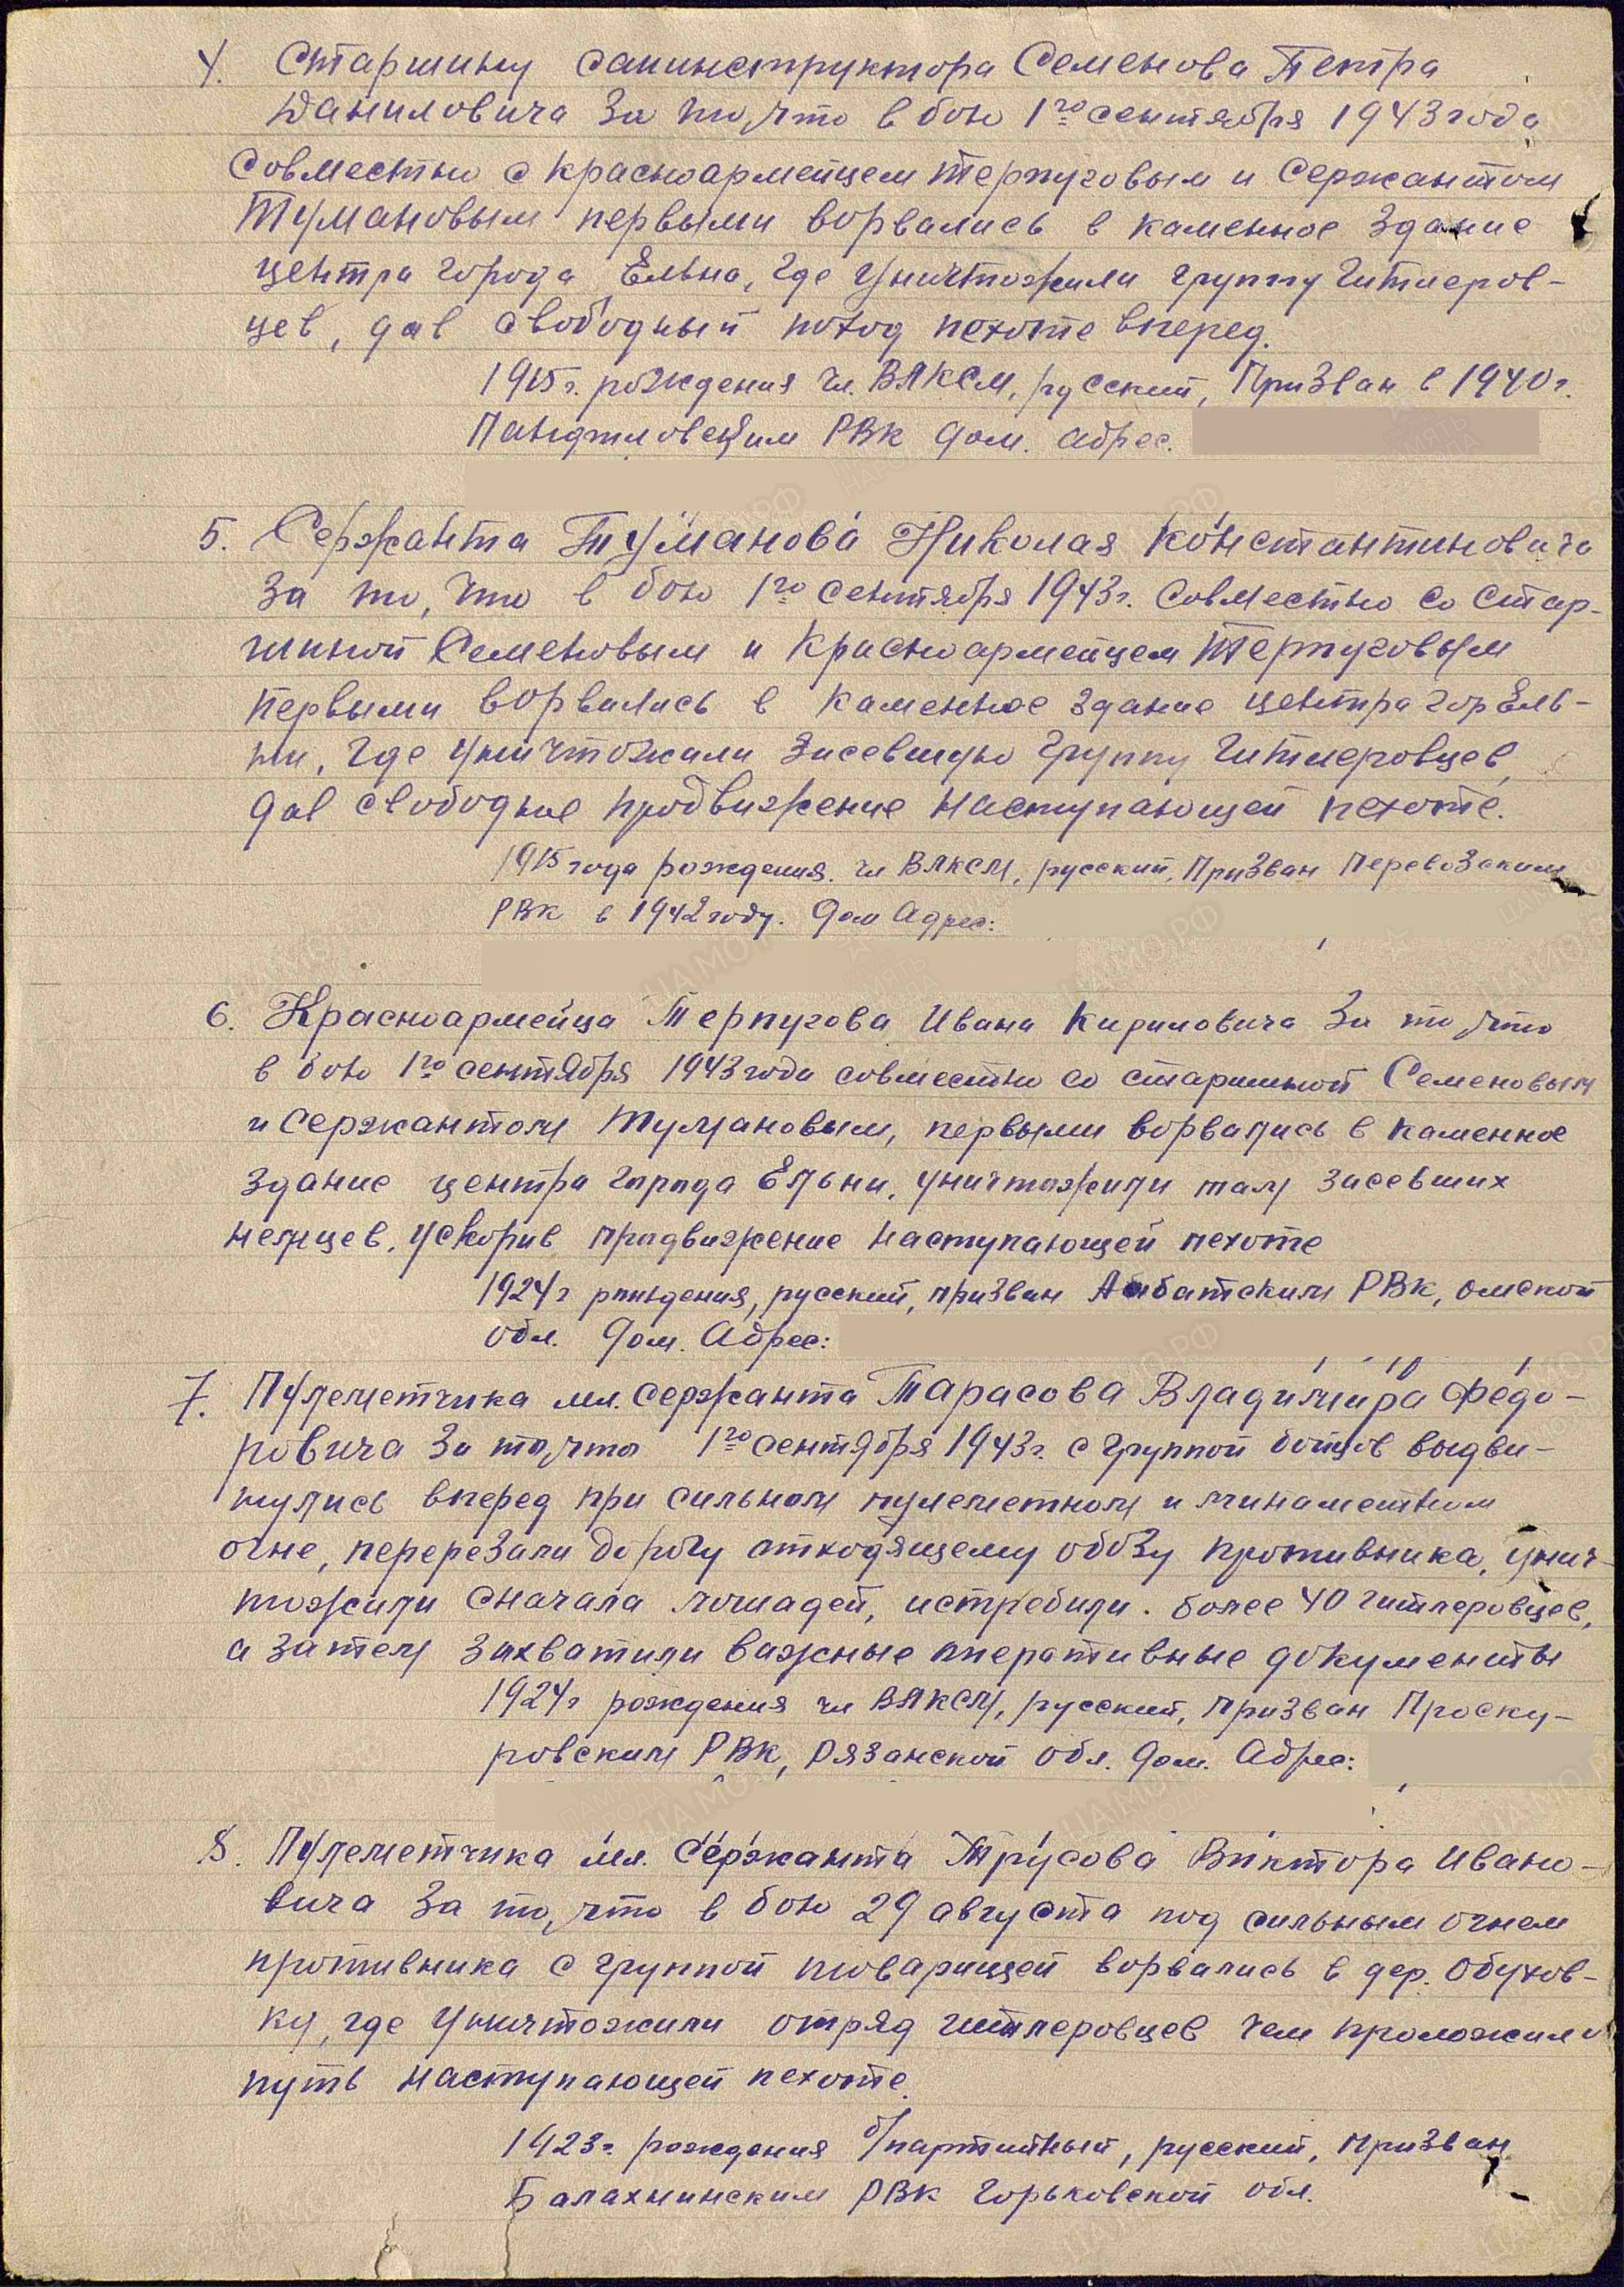 4. Старшину санинструктора Семенова Петра
Даниловича за то, что в бою 1го сентября 1943 года
совместно с красноармейцем Терпуговым и сержантом
Тумановым первыми ворвались в каменное здание
центра города Ельна, где уничтожили группу гитлеров-
цев, дав свободный поход пехоте вперед.
1915 г. рождения чл. ВЛКСМ, русский, призван в 1940 г.
РВК дом. адрес.
5. Сержанта Туманова Николая Константиновича
за то, что в бою 1го сентября 1943 г. совместно со стар-
шиной Семеновым и красноармейцем Терпуговым
первыми ворвались в каменное здание центра гор Ель-
ни, где уничтожили засевшую группу гитлеровцев,
дав свободное продвижение наступающей пехоте.
1915 года рождения. чл ВЛКСМ, русский, призван Перевозским
РВК в 1942 году. дом адрес:
6. Красноармейца Терпугова Ивана Кириловича за то, что
в бою 1го сентября 1943 года совместно со старшиной Семеновым
и сержантом Тумановым, первыми ворвались в каменное
здание центра города Ельни, уничтожили там засевших
немцев, ускорив продвижение наступающей пехоте
1924 г рождения, русский, призван Абатским РВК, омской
обл. дом. адрес:
7. Пулеметчика мл. сержанта Тарасова Владимира Федо-
ровича за то, что 1го сентября 1943 г. с группой бойцов выдви-
нулись вперед при сильном пулеметном и минаметном
огне, перерезали дорогу отходящему обозу противника, унич-
тожили сначала лошадей, истребили. более 40 гитлеровцев,
а затем захватили важные оперативные документы
1924 г рождения чл ВЛКСМ, русский, призван Проску-
ровским РВК, Рязанской обл. дом. адрес:
8. Пулеметчика мл. сержанта Трусова Виктора Ивано-
вича за то, что в бою 29 августа под сильным огнем
противника с группой товарищей ворвались в дер. Обухов-
ку, где уничтожили отряд гитлеровцев чем проложили
путь наступающей пехоте.
1923 г. рождения б/партийный, русский, призван
Балахнинским РВК Горьковской обл.